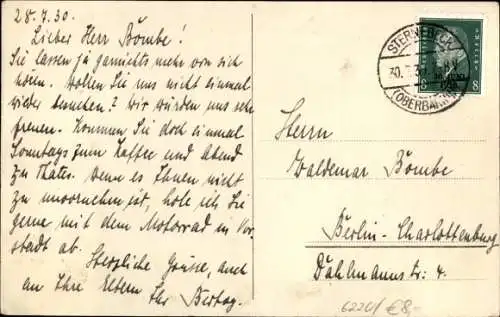 28.7.30.
Lieber Herr Bömbe!
Sie lassen ja garnichts mehr von sich
hören. Wollen Sie uns nicht einmal
wieder besuchen? Wir würden uns sehr
freuen. Kommen Sie doch einmal
Sonntags zum Kaffee und Abend
zu Wenn es Ihnen nicht
zu unvornehm ist, hole ich Sie
gerne mit dem Motorrad in Vor-
stadt ab.
Herzliche Grüsse, auch
an Ihre Eltern Ihr
STERNEBECK
(OBERBARNIM)
8
8
Herrn
Waldemar Bömbe
Berlin-Charlottenburg
Dahlmannstr. 4.
€8,-